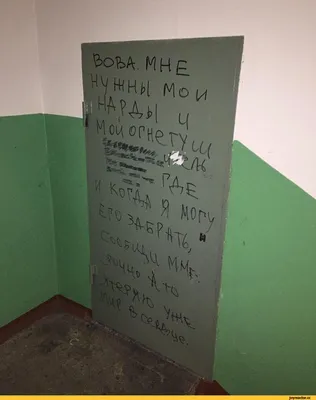 ВОВА. МНЕ
НУЖНЫ МОИ
НАРДЫ И
МОЙ ОГНЕТУШ
ИТЕЛЬ
ГДЕ
И КОГДА Я МОГУ
ЕГО ЗАБРАТЬ,
СООБЩИ МНЕ.
СРОЧНО А ТО
ТЕРЯЮ УЖЕ
МИР В СЕРДЦЕ.
joyreactor.cc